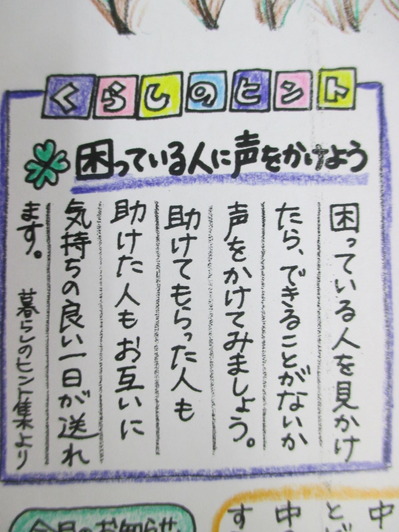 くらしのヒント
困っている人に声をかけよう
困っている人を見かけ
たら、できることがないか
声をかけてみましょう。
助けてもらった人も
助けた人もお互いに
気持ちの良い一日が送れ
ます。
暮らしのヒント集より
今月のお知らせ
中
と、
中
す